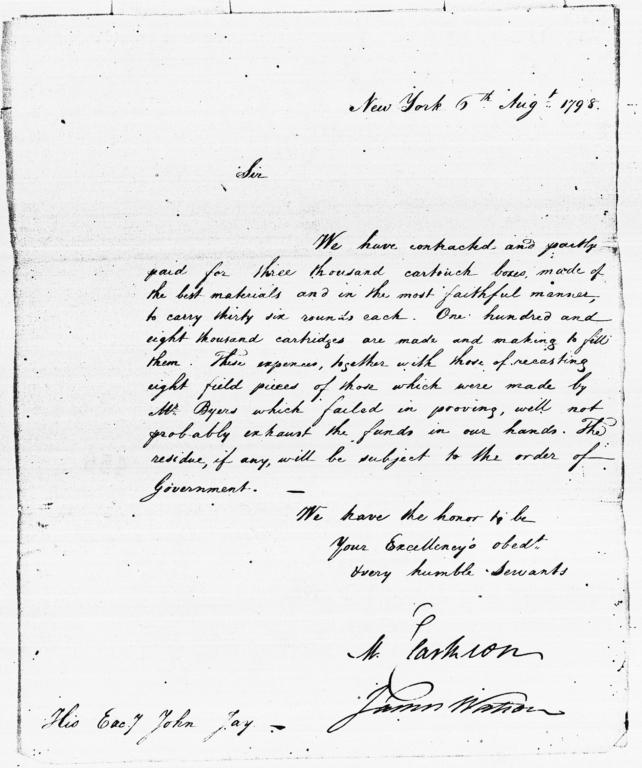 New York 6th Augt. 1798.
Sir
We have contracted and partly
paid for three thousand cartouch boxes, made of
the best materials and in the most faithful manner,
to carry thirty six rounds each. One hundred and
eight thousand cartridges are made and making to fill
them. These expences, together with those of recasting
eight field pieces of those which were made by
Mr. Byers which failed in proving, will not
probably exhaust the funds in our hands. The
residue, if any, will be subject to the order of
Government. —
We have the honor to be
Your Excellency's obedt.
& very humble Servants
M. Clarkson
James Watson
His Excy John Jay —